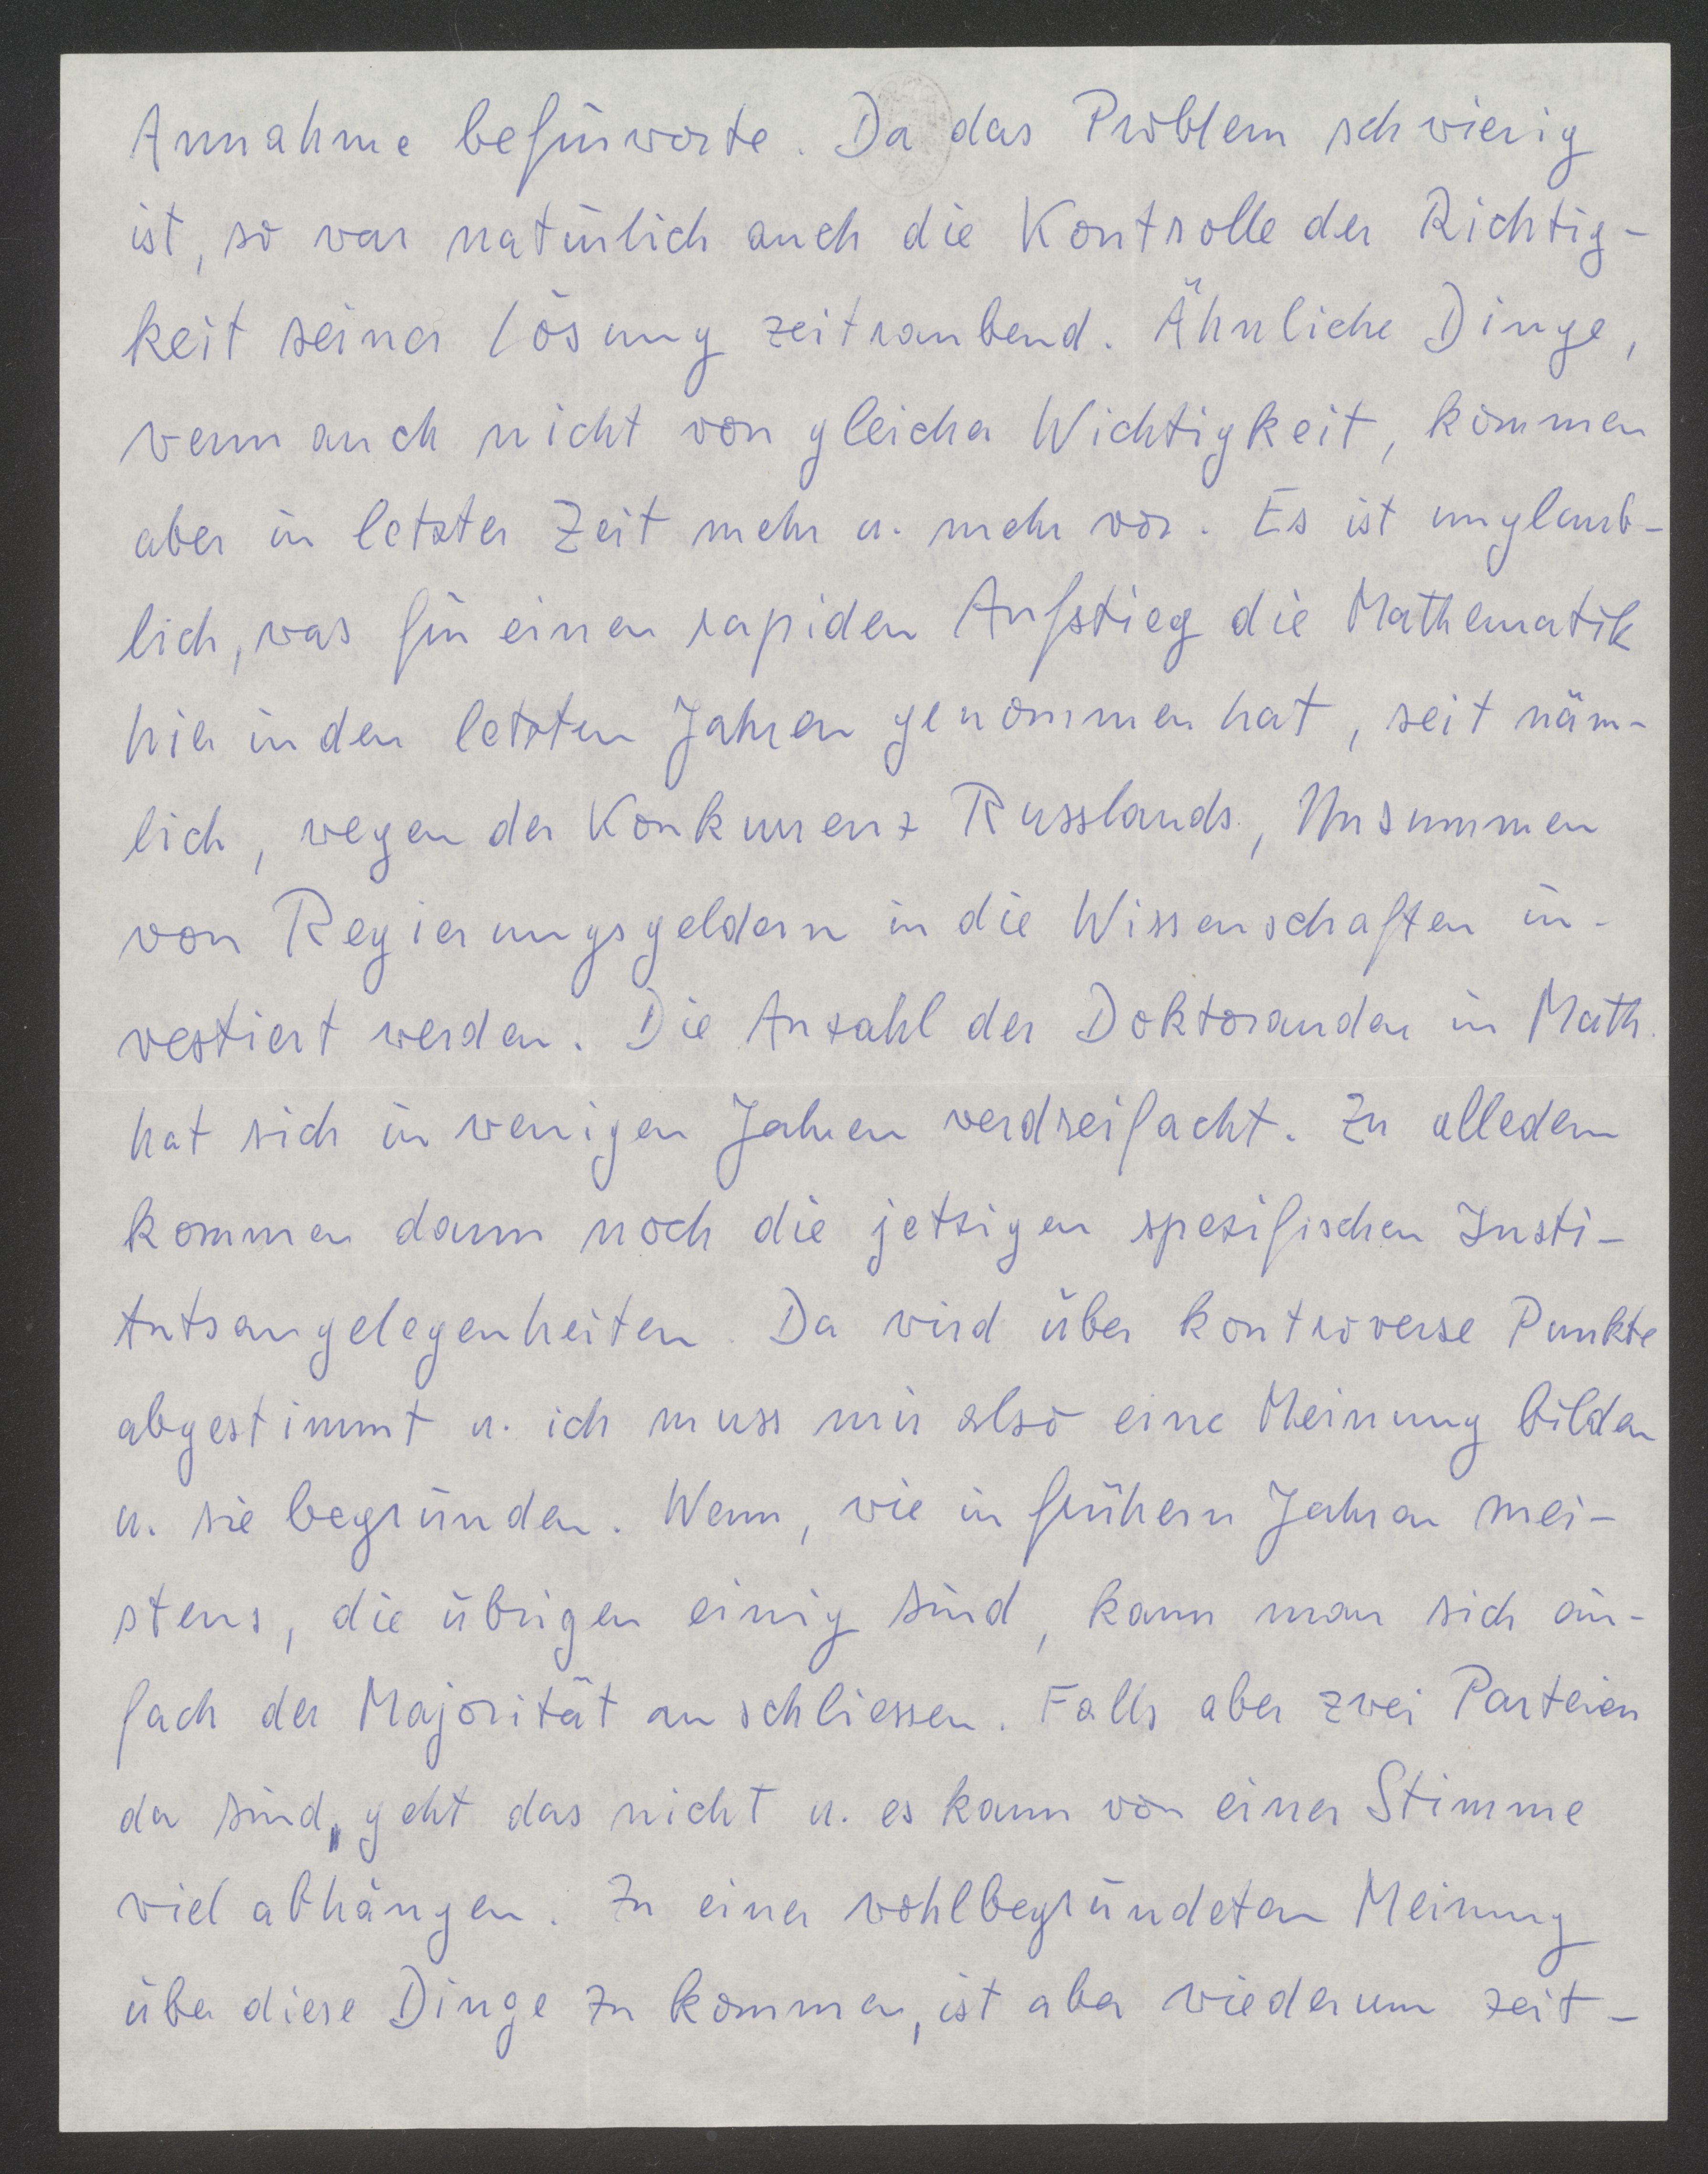 Annahme befürworte. Da das Problem schwierig
ist, so war natürlich auch die Kontrolle der Richtig-
keit seiner Lösung zeitraubend. Ähnliche Dinge,
wenn auch nicht von gleicher Wichtigkeit, kommen
aber in letzter Zeit mehr u. mehr vor. Es ist unglaub-
lich, was für einen rapiden Aufstieg die Mathematik
hier in den letzten Jahren genommen hat, seit näm-
lich, wegen der Konkurrenz Russlands, Unsummen
von Regierungsgeldern in die Wissenschaften in-
vestiert werden. Die Anzahl der Doktoranden in Math.
hat sich in wenigen Jahren verdreifacht. Zu alledem
kommen dann noch die jetzigen spezifischen Insti-
tutsangelegenheiten. Da wird über kontroverse Punkte
abgestimmt u. ich muss mir also eine Meinung bilden
u. sie begründen. Wenn, wie in frühern Jahren mei-
stens, die übrigen einig sind, kann man sich ein-
fach der Majorität anschliessen. Falls aber zwei Parteien
da sind, geht das nicht u. es kann von einer Stimme
viel abhängen. Zu einer wohlbegründeten Meinung
über diese Dinge zu kommen, ist aber wiederum zeit-